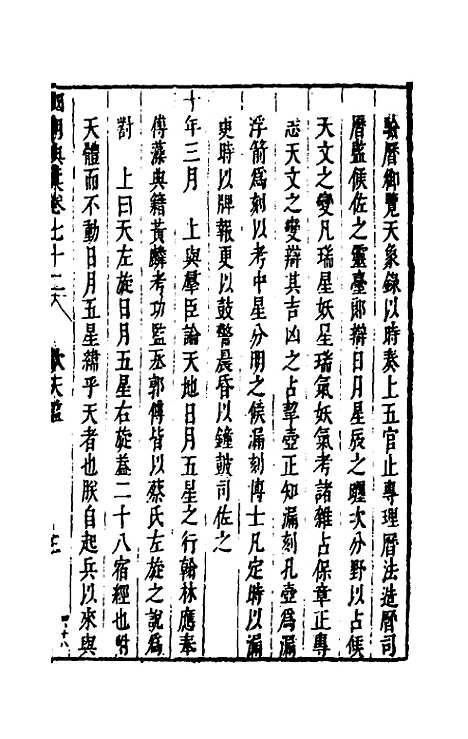 驗曆御覽天象錄以時奏上五官正專理曆法造曆司
曆監候佐之靈臺郎辯日月星辰之躔次分野以占候
天文之變凡瑞星妖星瑞氣妖氣考諸雜占保章正專
志天文之變辯其吉凶之占挈壺正知漏刻孔壺爲漏
浮箭爲刻以考中星分明之候漏刻博士凡定時以漏
更時以牌報更以鼓警晨昏以鐘鼓司佐之
十年三月　上與羣臣論天地日月五星之行翰林應奉
傅藻典籍黃麟考功監丞郭傳皆以蔡氏左旋之說爲
對　上曰天左旋日月五星右旋蓋二十八宿經也附
天體而不動日月五星緯乎天者也朕自起兵以來與
國朝典彙卷七十二
欽天監